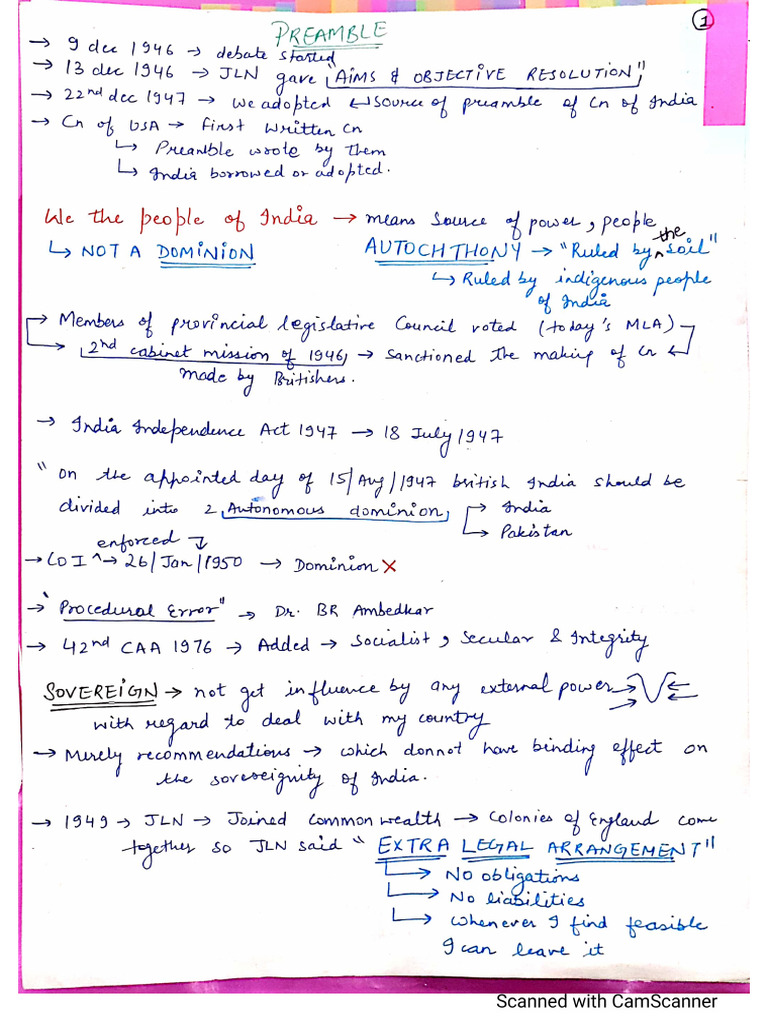 PREAMBLE
①
→ 9 dec 1946 → debate started
→ 13 dec 1946 → JLN gave "AIMS & OBJECTIVE RESOLUTION"
→ 22nd dec 1947 → We adopted ↳ source of preamble of Cn of India
→ Cn of USA → First written Cn
↳ Preamble wrote by them
↳ India borrowed or adopted.
We the people of India → means source of power, people
↳ NOT A DOMINION
AUTOCHTHONY → "Ruled by the soil"
↳ Ruled by indigenous people
of India
→ Members of provincial legislative Council voted (today's MLA)
→ 2nd cabinet mission of 1946 → Sanctioned the making of Cn
made by Britishers.
→ India Independence Act 1947 → 18 July 1947
"on the appointed day of 15/Aug/1947 british India should be
divided into 2 Autonomous dominion → India
→ Pakistan
enforced
→ COI ^→ 26/Jan/1950 → Dominion ×
→ "Procedural Error" → Dr. BR Ambedkar
→ 42nd CAA 1976 → Added → Socialist, Secular & Integrity
SOVEREIGN → not get influence by any external power
with regard to deal with my country
→ Merely recommendations → which donnot have binding effect on
the sovereignity of India.
→ 1949 → JLN → Joined common wealth → Colonies of England come
together so JLN said "EXTRA LEGAL ARRANGEMENT"
↳ No obligations
↳ No liabilities
↳ Whenever I find feasible
I can leave it
Scanned with CamScanner